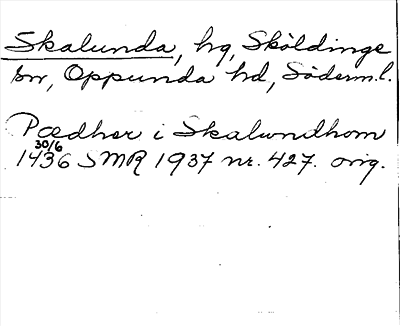 Skalunda, hg, Sköldinge
sn, Oppunda hd, Söderm.l.
Pædher i Skalundhom
30/6
1436 SMR 1937 nr. 427. orig.